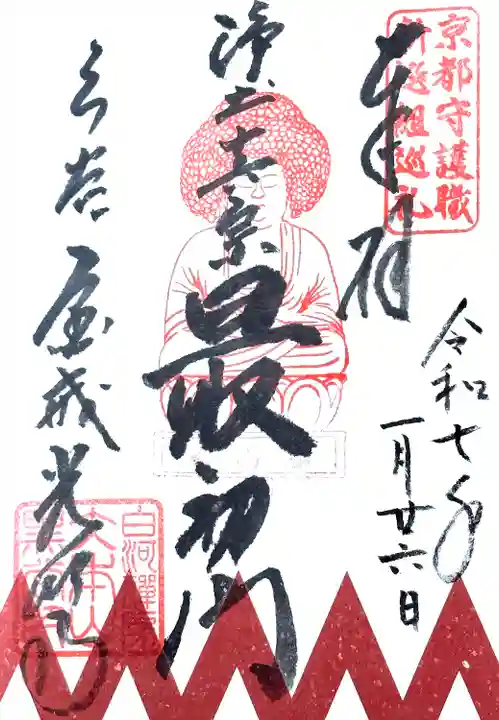 京都守護職
新選組巡礼
奉拝
令和七年
一月廿六日
浄土真宗最初門
くろ谷 金戒光明寺
白河禅房
大本山
黒谷